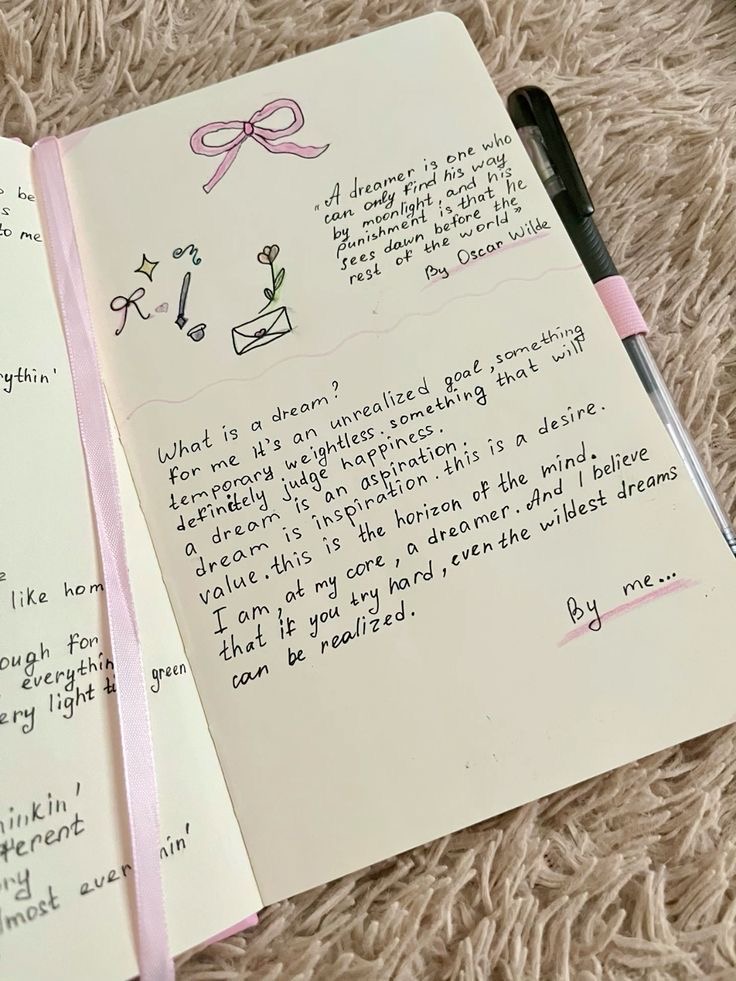 o be
s
to me
ythin'
like hom
ough for
everythin
ery light t green
hinkin'
ferent
ry
lmost ever nin'
„A dreamer is one who
can only find his way
by moonlight, and his
punishment is that he
sees dawn before the
rest of the world”
By Oscar Wilde
What is a dream?
for me it's an unrealized goal, something
temporary weightless. something that will
definitely judge happiness.
a dream is an aspiration.
dream is inspiration. this is a desire.
value. this is the horizon of the mind.
I am, at my core, a dreamer. And I believe
that if you try hard, even the wildest dreams
can be realized.
By me...